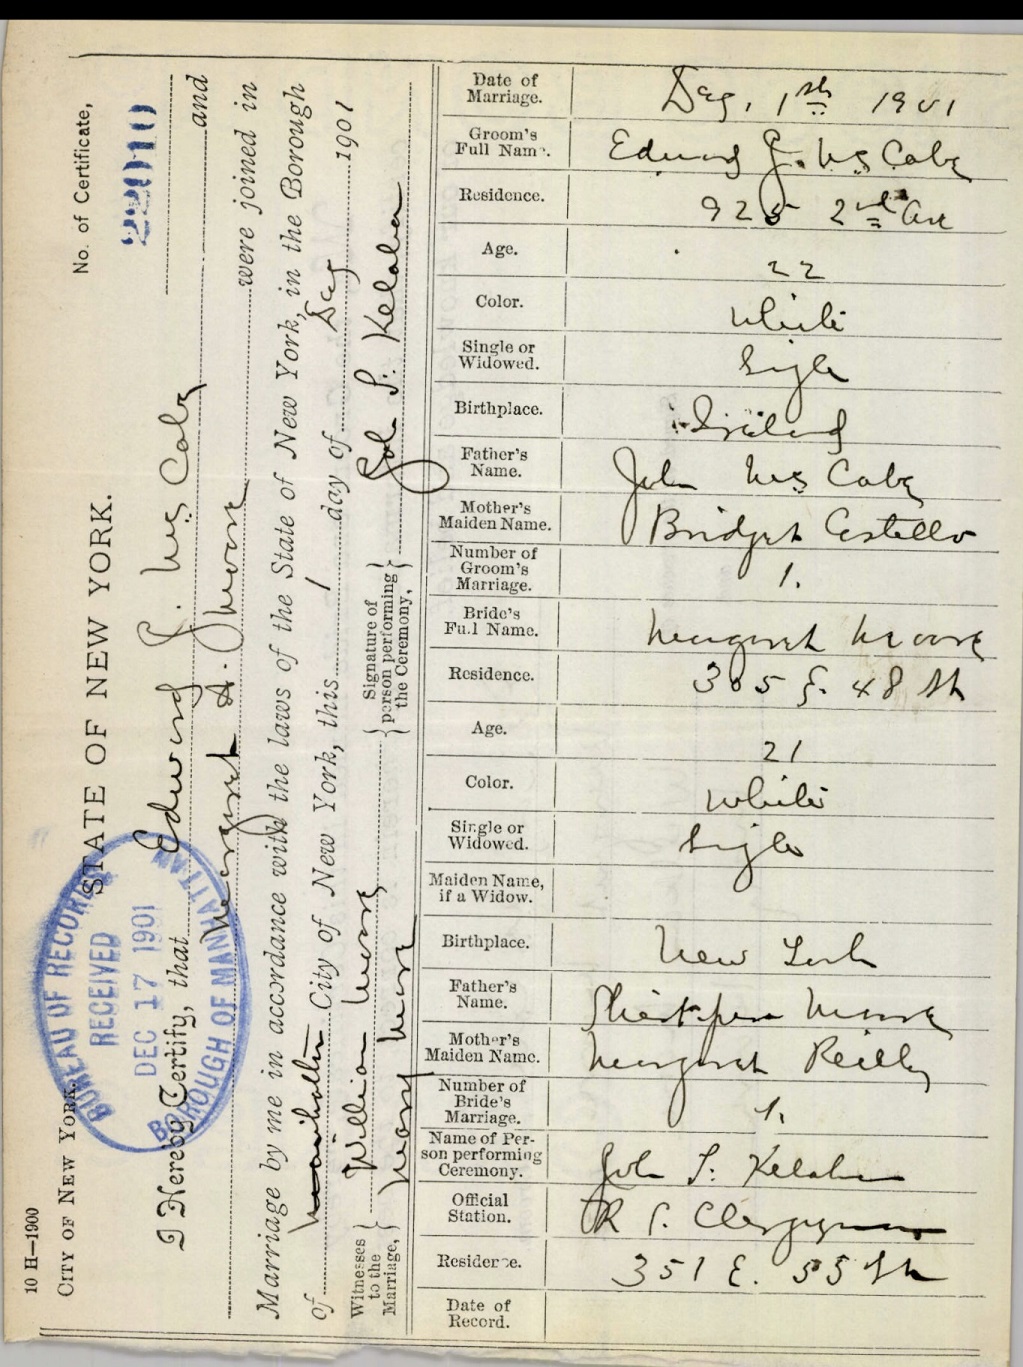 10 H—1900
CITY OF NEW YORK.
STATE OF NEW YORK.
No. of Certificate,
22910
BUREAU OF RECORDS
RECEIVED
DEC 17 1901
BOROUGH OF MANHATTAN
I Hereby Certify, that Edward J. McCabe and
Margaret A. Moore were joined in
Marriage by me in accordance with the laws of the State of New York, in the Borough
of Manhattan City of New York, this 1 day of Dec 1901
Witnesses to the Marriage, William Moore
Mary Moore
Signature of person performing the Ceremony, John S. Kelaher
Date of Marriage. Dec, 1st 1901
Groom's Full Name. Edward J. McCabe
Residence. 925 2nd Ave
Age. 22
Color. White
Single or Widowed. Single
Birthplace. Ireland
Father's Name. John McCabe
Mother's Maiden Name. Bridget Costello
Number of Groom's Marriage. 1.
Bride's Full Name. Margaret Moore
Residence. 305 E. 48 St
Age. 21
Color. White
Single or Widowed. Single
Maiden Name, if a Widow.
Birthplace. New York
Father's Name. Moore
Mother's Maiden Name. Margaret Reilly
Number of Bride's Marriage. 1.
Name of Person performing Ceremony. John S. Kelaher
Official Station. R C. Clergyman
Residence. 351 E. 55 St
Date of Record.